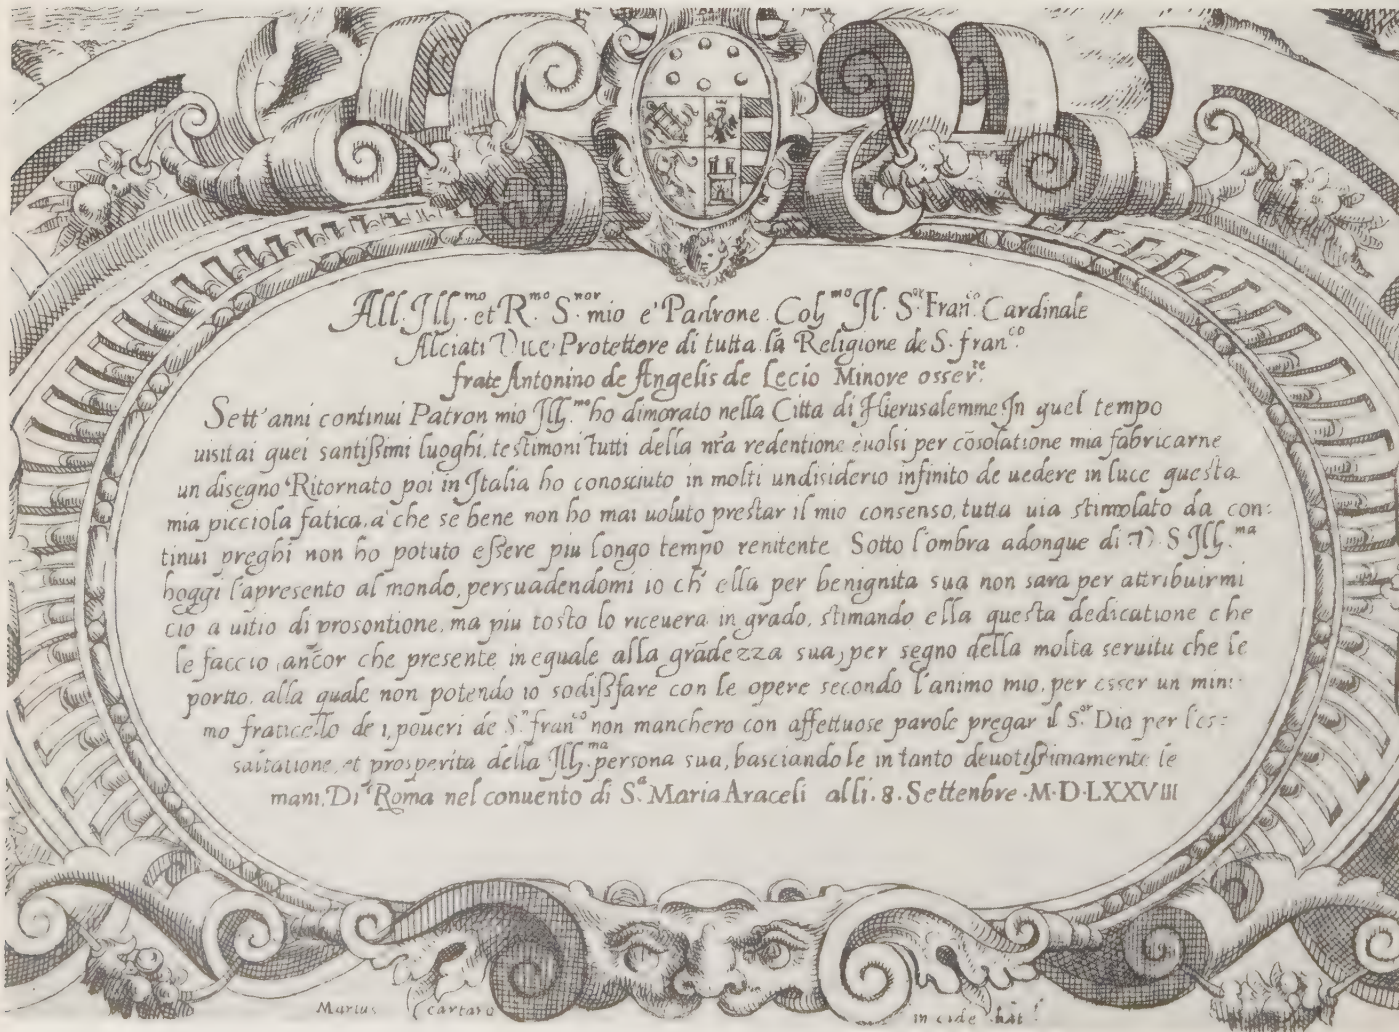 All Ill.mo et R.mo S.nor mio e' Padrone Col.mo Il S.or Fran.co Cardinale
Alciati Vice Protettore di tutta la Religione de S. fran.co
frate Antonino de Angelis de Lecio Minore osser.te
Sett' anni continui Patron mio Ill.mo ho dimorato nella Citta di Hierusalemme In quel tempo
uisitai quei santißimi luoghi, testimoni tutti della nr̃a redentione e uolsi per cõsolatione mia fabricarne
un disegno Ritornato poi in Italia ho conosciuto in molti un disiderio infinito de uedere in luce questa
mia picciola fatica, a' che se bene non ho mai uoluto prestar il mio consenso, tutta uia stimolato da con:
tinui preghi non ho potuto eßere piu longo tempo renitente Sotto l'ombra adonque di V S Ill.ma
hoggi l'apresento al mondo, persuadendomi io ch' ella per benignita sua non sara per attribuirmi
cio a uitio di prosontione, ma piu tosto lo riceuera in grado, stimando ella questa dedicatione che
le faccio, ancor che presente inequale alla grãdezza sua, per segno della molta seruitu che le
porto, alla quale non potendo io sodißfare con le opere secondo l'animo mio, per esser un mini:
mo fraticello de i, poueri de S.n fran.co non manchero con affettuose parole pregar il S.or Dio per l'es:
saltatione, et prosperita della Ill.ma persona sua, basciandole in tanto deuotißimamente le
mani, Di Roma nel conuento di S.a Maria Araceli alli. 8. Settenbre · M · D · LXXVIII
Marius cartaro incidebat